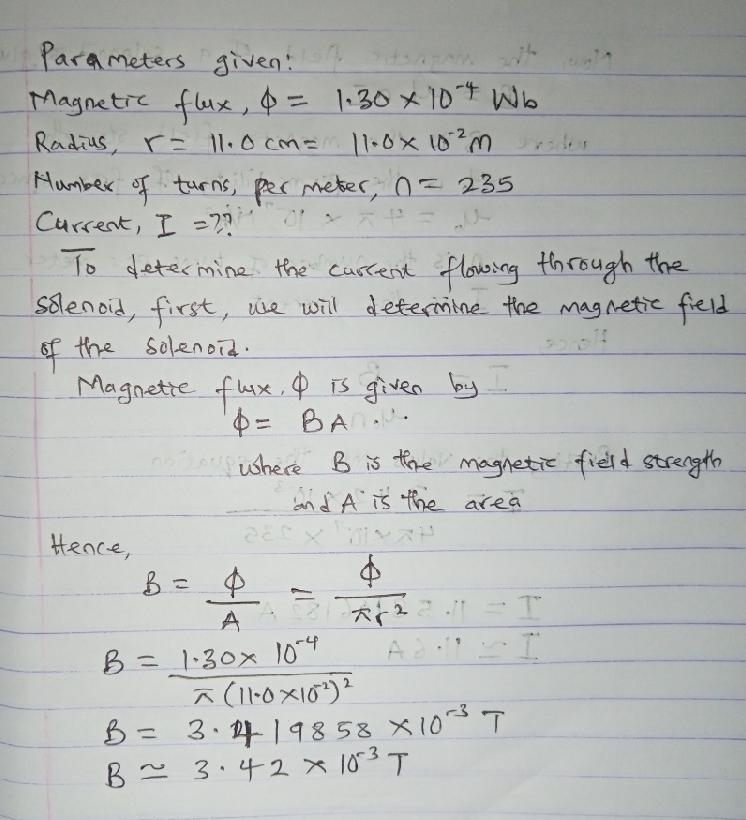 Parameters given:
Magnetic flux, ϕ = 1.30 × 10⁻⁴ Wb
Radius, r = 11.0 cm = 11.0 × 10⁻² m
Number of turns, per meter, n = 235
Current, I = ??
To determine the current flowing through the
solenoid, first, we will determine the magnetic field
of the solenoid.
Magnetic flux, ϕ is given by
ϕ = BA ...
where B is the magnetic field strength
and A is the area
Hence,
B = ϕ/A = ϕ/πr²
B = 1.30 × 10⁻⁴ / π(11.0 × 10⁻²)²
B = 3.419858 × 10⁻³ T
B ≃ 3.42 × 10⁻³ T